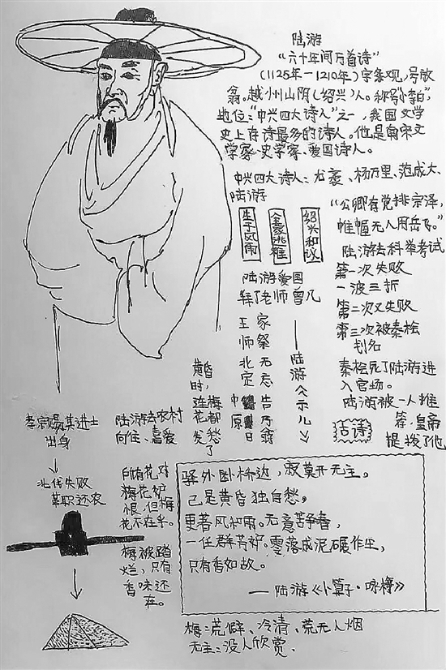 陆游
“六十年间万首诗”
(1125年-1210年)字务观,号放
翁。越州山阴(绍兴)人。称“小李白”,
地位:“中兴四大诗人”之一,我国文学
史上存诗最多的诗人。他是南宋文
学家、史学家、爱国诗人。
中兴四大诗人:尤袤、杨万里、范成大、
陆游
“公卿有党排宗泽,
帷幄无人用岳飞。”
生于风雨
金袭
绍兴和议
陆游去科举考试
第一次失败
一波三折
第二次又失败
第三次被秦桧
划名
秦桧死了陆游进
入官场。
陆游被一人推
荐,皇帝
提拔了他
陆游爱国
拜了老师曾几
王师北定中原日
家祭无忘告乃翁
——陆游《示儿》
活诗
黄昏时,连梅花都发愁了
孝宗
其进士
出身
陆游去农村
向往、喜爱
北伐失败
革职还农
所有花对
梅花妒
恨,但梅
花不在乎。
梅被踏
烂,只有
香味还
在。
驿外断桥边,寂寞开无主。
已是黄昏独自愁,
更著风和雨。无意苦争春,
一任群芳妒。零落成泥碾作尘,
只有香如故。
——陆游《卜算子·咏梅》
梅:荒僻、冷清、荒无人烟
无主:没人欣赏